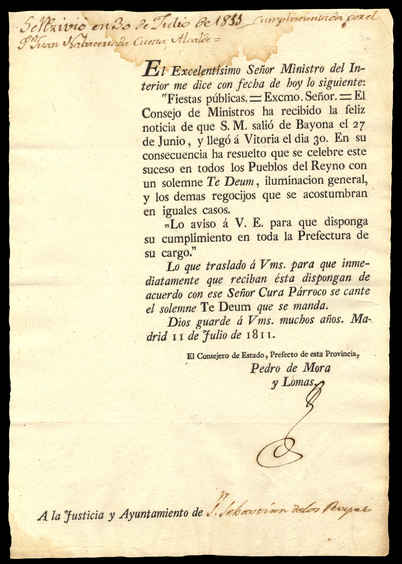 Se Rezivió en 30 de Julio de 1811 Cumplimentación por el
Alcalde =
El Excelentísimo Señor Ministro del In-
terior me dice con fecha de hoy lo siguiente:
"Fiestas públicas. = Excmo. Señor. = El
Consejo de Ministros ha recibido la feliz
noticia de que S. M. salió de Bayona el 27
de Junio, y llegó á Vitoria el dia 30. En su
consecuencia ha resuelto que se celebre este
suceso en todos los Pueblos del Reyno con
un solemne Te Deum, iluminacion general,
y los demas regocijos que se acostumbran
en iguales casos.
"Lo aviso á V. E. para que disponga
su cumplimiento en toda la Prefectura de
su cargo."
Lo que traslado á Vms. para que inme-
diatamente que reciban ésta dispongan de
acuerdo con ese Señor Cura Párroco se cante
el solemne Te Deum que se manda.
Dios guarde á Vms. muchos años. Ma-
drid 11 de Julio de 1811.
El Consejero de Estado, Prefecto de esta Provincia,
Pedro de Mora
y Lomas.
A la Justicia y Ayuntamiento de Sn. Sebastian de los Reyes